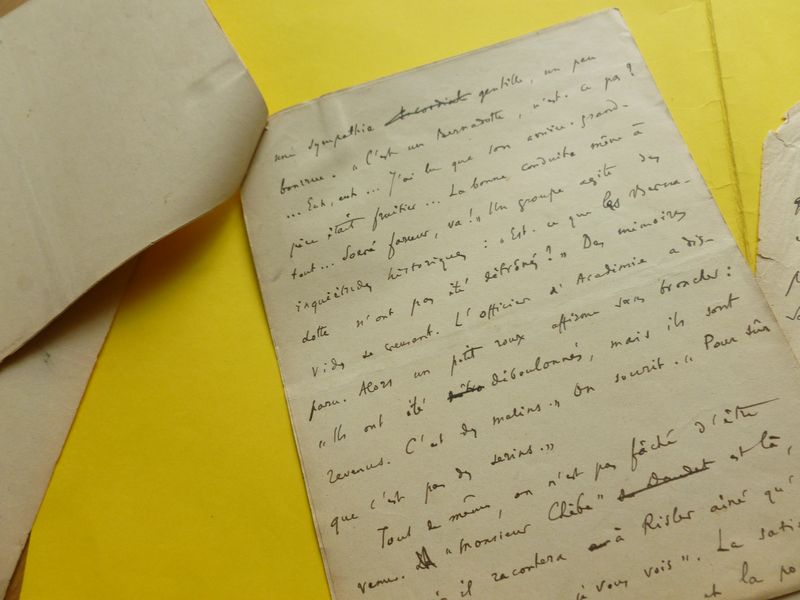 une sympathie gentille, un peu
bourrue. « C'est un Bernadotte, n'est-ce pas ?
... Euh, euh ... J'ai lu que son arrière-grand-
père était fruitier ... La bonne conduite mène à
tout ... Sacré farceur, va ! » Un groupe agite des
inquiétudes historiques : « Est-ce que les Berna-
dotte n'ont pas été détrônés ? » Des mémoires
vides se creusent. L'Officier d'Académie a dis-
paru. Alors un petit roux affirme sans broncher :
« Ils ont été déboulonnés, mais ils sont
revenus. C'est des malins. » On sourit. « Pour sûr
que c'est pas des serins. »
Tout de même, on n'est pas fâché d'être
venu. "Monsieur Chèbe" de Daudet est là,
il racontera à Risler aîné qu'
à vous vois". La satis
et la po